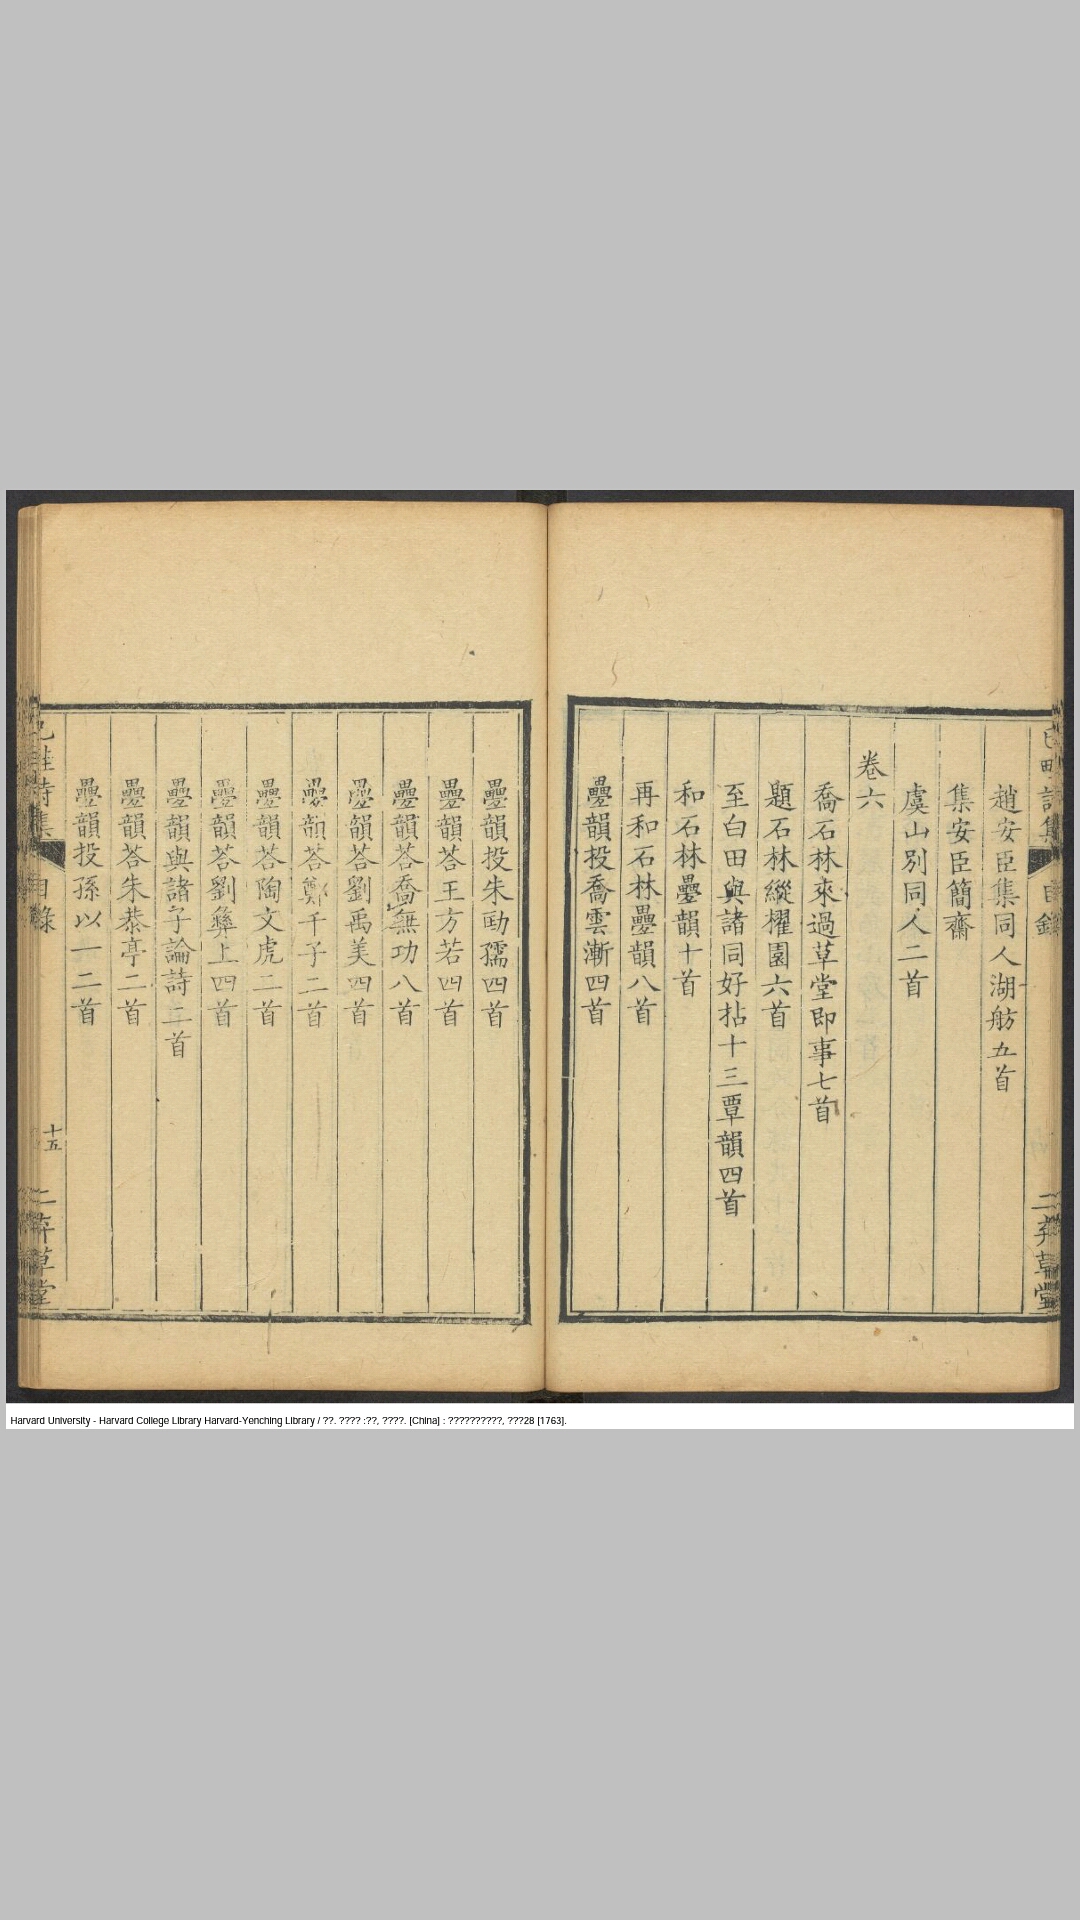 趙安臣集同人湖舫五首
集安臣簡齋
虞山別同人二首
卷六
喬石林來過草堂即事七首
題石林縱櫂園六首
至白田與諸同好拈十三覃韻四首
和石林疊韻十首
再和石林疊韻八首
疊韻投喬雲漸四首
疊韻投朱劭孺四首
疊韻荅王方若四首
疊韻荅喬無功八首
疊韻荅劉禹美四首
疊韻荅鄭千子二首
疊韻荅陶文虎二首
疊韻荅劉彝上四首
疊韻與諸子論詩二首
疊韻荅朱恭亭二首
疊韻投孫以一二首
詩集
目錄
十五
二弃草堂
Harvard University - Harvard College Library Harvard-Yenching Library / ??. ???? :??, ????. [China] : ??????????, ???28 [1763].